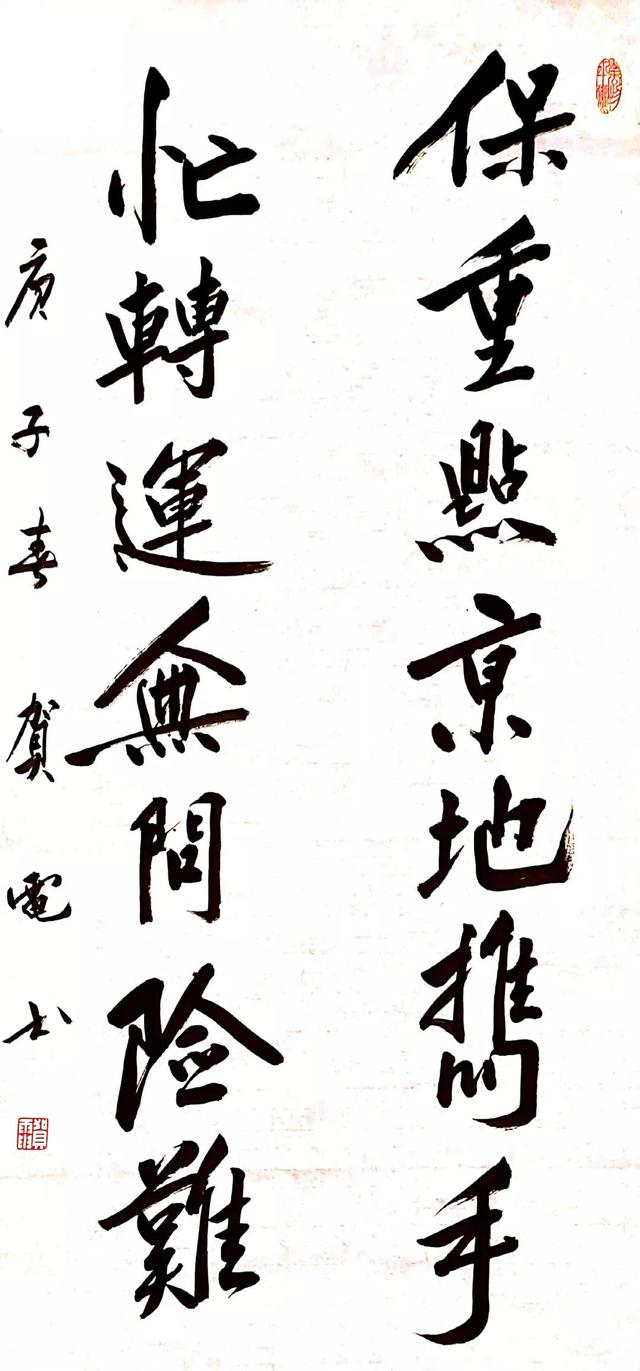 保重點京地攜手
忙轉運無問險難
庚子春賀電书